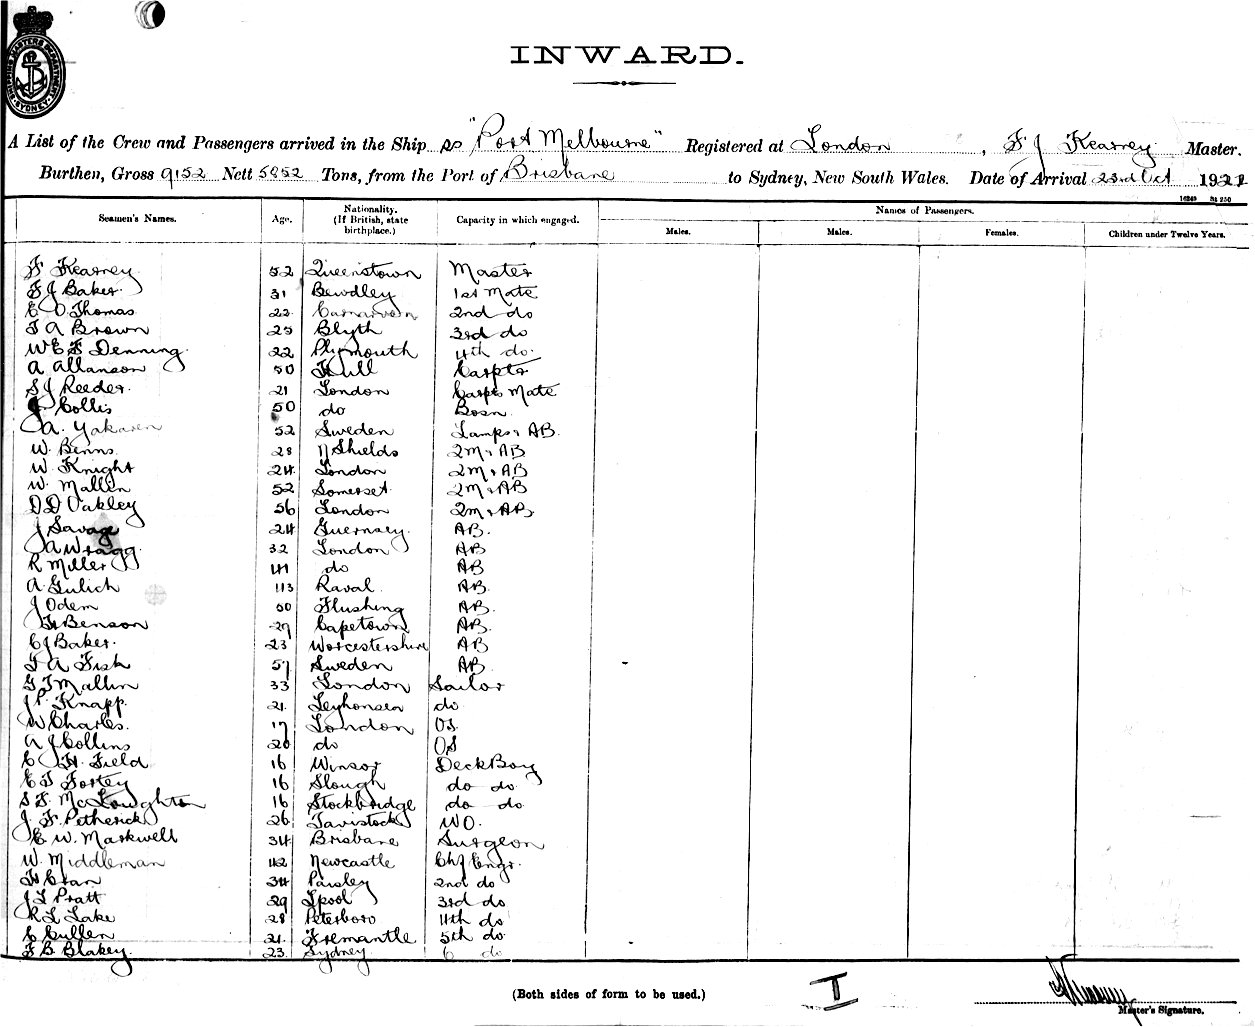 SHIPPING MASTERS DEPARTMENT SYDNEY
INWARD.
A List of the Crew and Passengers arrived in the Ship ss "Port Melbourne" Registered at London, F J Kearney Master.
Burthen, Gross 9152 Nett 5852 Tons, from the Port of Brisbane to Sydney, New South Wales. Date of Arrival 23rd Oct 192
Seamen's Names. Age. Nationality. (If British, state birthplace.) Capacity in which engaged. Names of Passengers.
Males. Males. Females. Children under Twelve Years.
F Kearney 52 Queenstown Master
F J Baker 31 Bewdley 1st Mate
E O Thomas 22 Carnarvon 2nd do
F A Brown 25 Blyth 3rd do
W E F Denning 22 Plymouth 4th do
A Allanson 50 Hull Carptr
S J Reeder 21 London Carptrs Mate
J Collis 50 do Bosn
A. 52 Sweden Lamps & AB
W. Benns 28 N Shields 2M & AB
W. Knight 24 London 2M & AB
W. Mallin 52 Somerset 2M & AB
D D Oakley 56 London 2M & AB
J Savage 24 Guernsey AB.
A Wragg 32 London AB
R Miller do AB
A. Gulich 43 Raval AB.
J Odem 50 Flushing AB.
H Benson 29 Capetown AB.
C J Baker 23 Worcestershire AB
F A Fisk 57 Sweden AB
G F Mallin 33 London Sailor
J P. Knapp 21 do
W Charles 17 London OS
A J Collins 20 do OS
C H. Field 16 Winsor Deck Boy
E F Fortey 16 Slough do do
S F. McLoughton 16 Stockbridge do do
J. F. Petherick 26 Tavistock WO.
E W. Markwell 34 Brisbane Surgeon
W. Middleman 42 Newcastle Chf Engr.
H Cran 34 Paisley 2nd do
J L Pratt 29 Lpool 3rd do
R L Lake 28 Peterboro 4th do
C Cullen 21. Fremantle 5th do
F B Blakey 23 Sydney 6 do
(Both sides of form to be used.) I
Master's Signature.